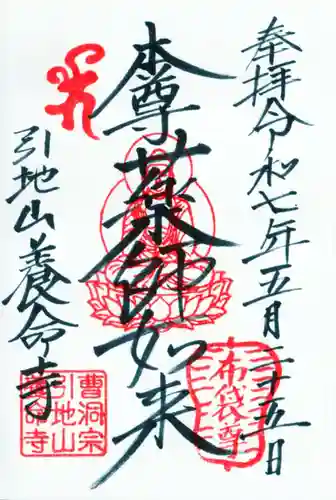 奉拝令和七年五月二十五日
本尊薬師如来
引地山養命寺
布袋尊
曹洞宗
引地山
養命寺